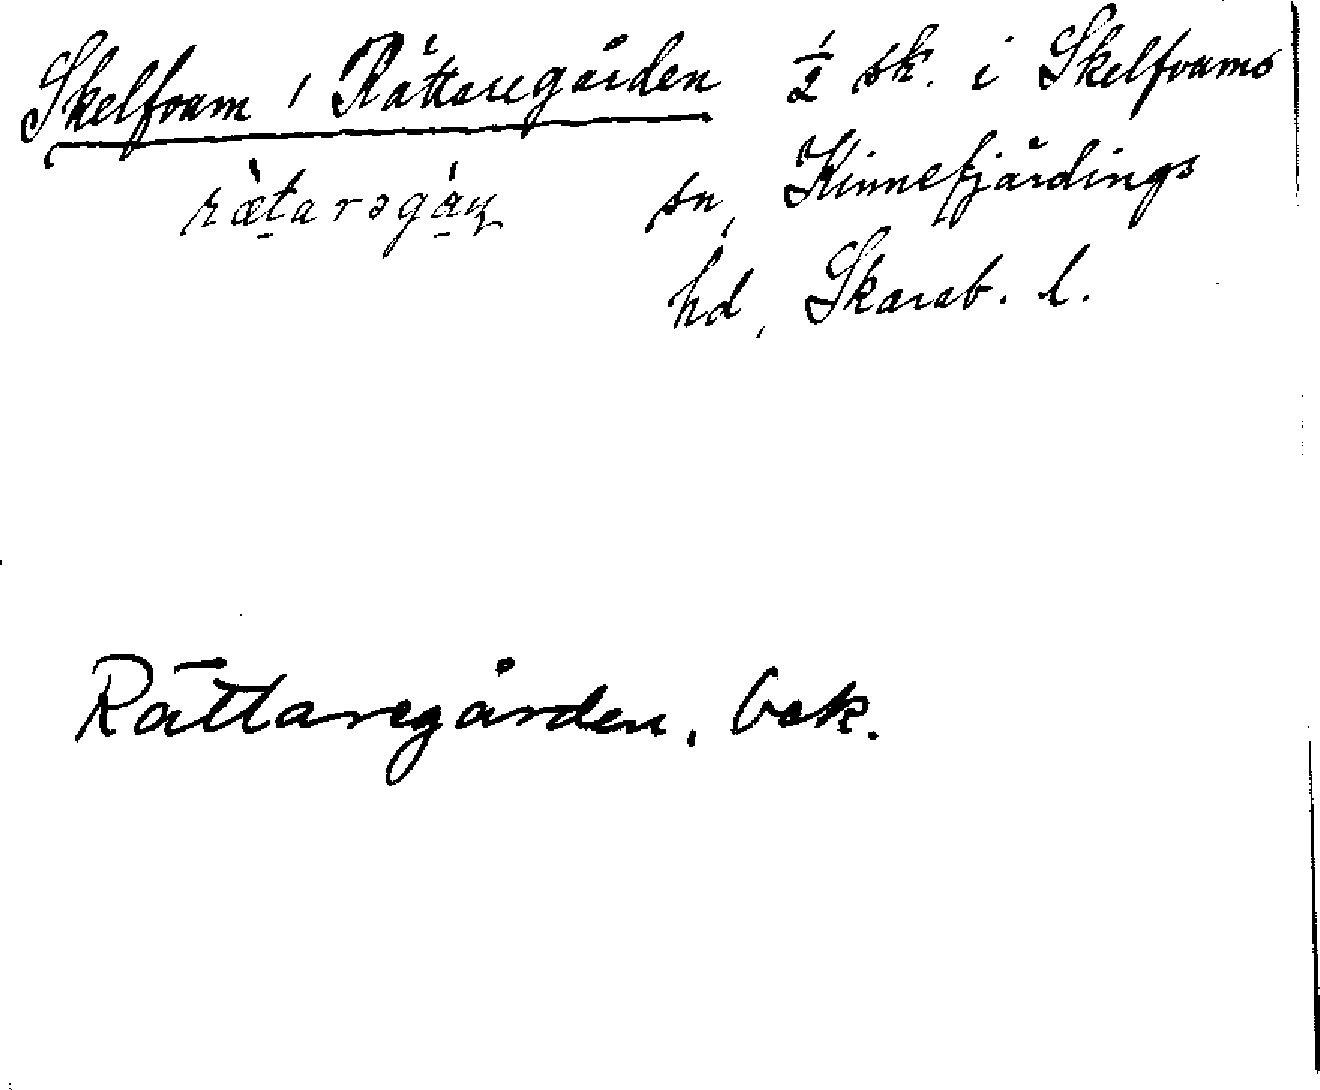 Skelfvum, Rättaregården ½ sk. i Skelfvums
sn, Kinnefjärdings
hd, Skarab. l.
Rättaregården, bek.